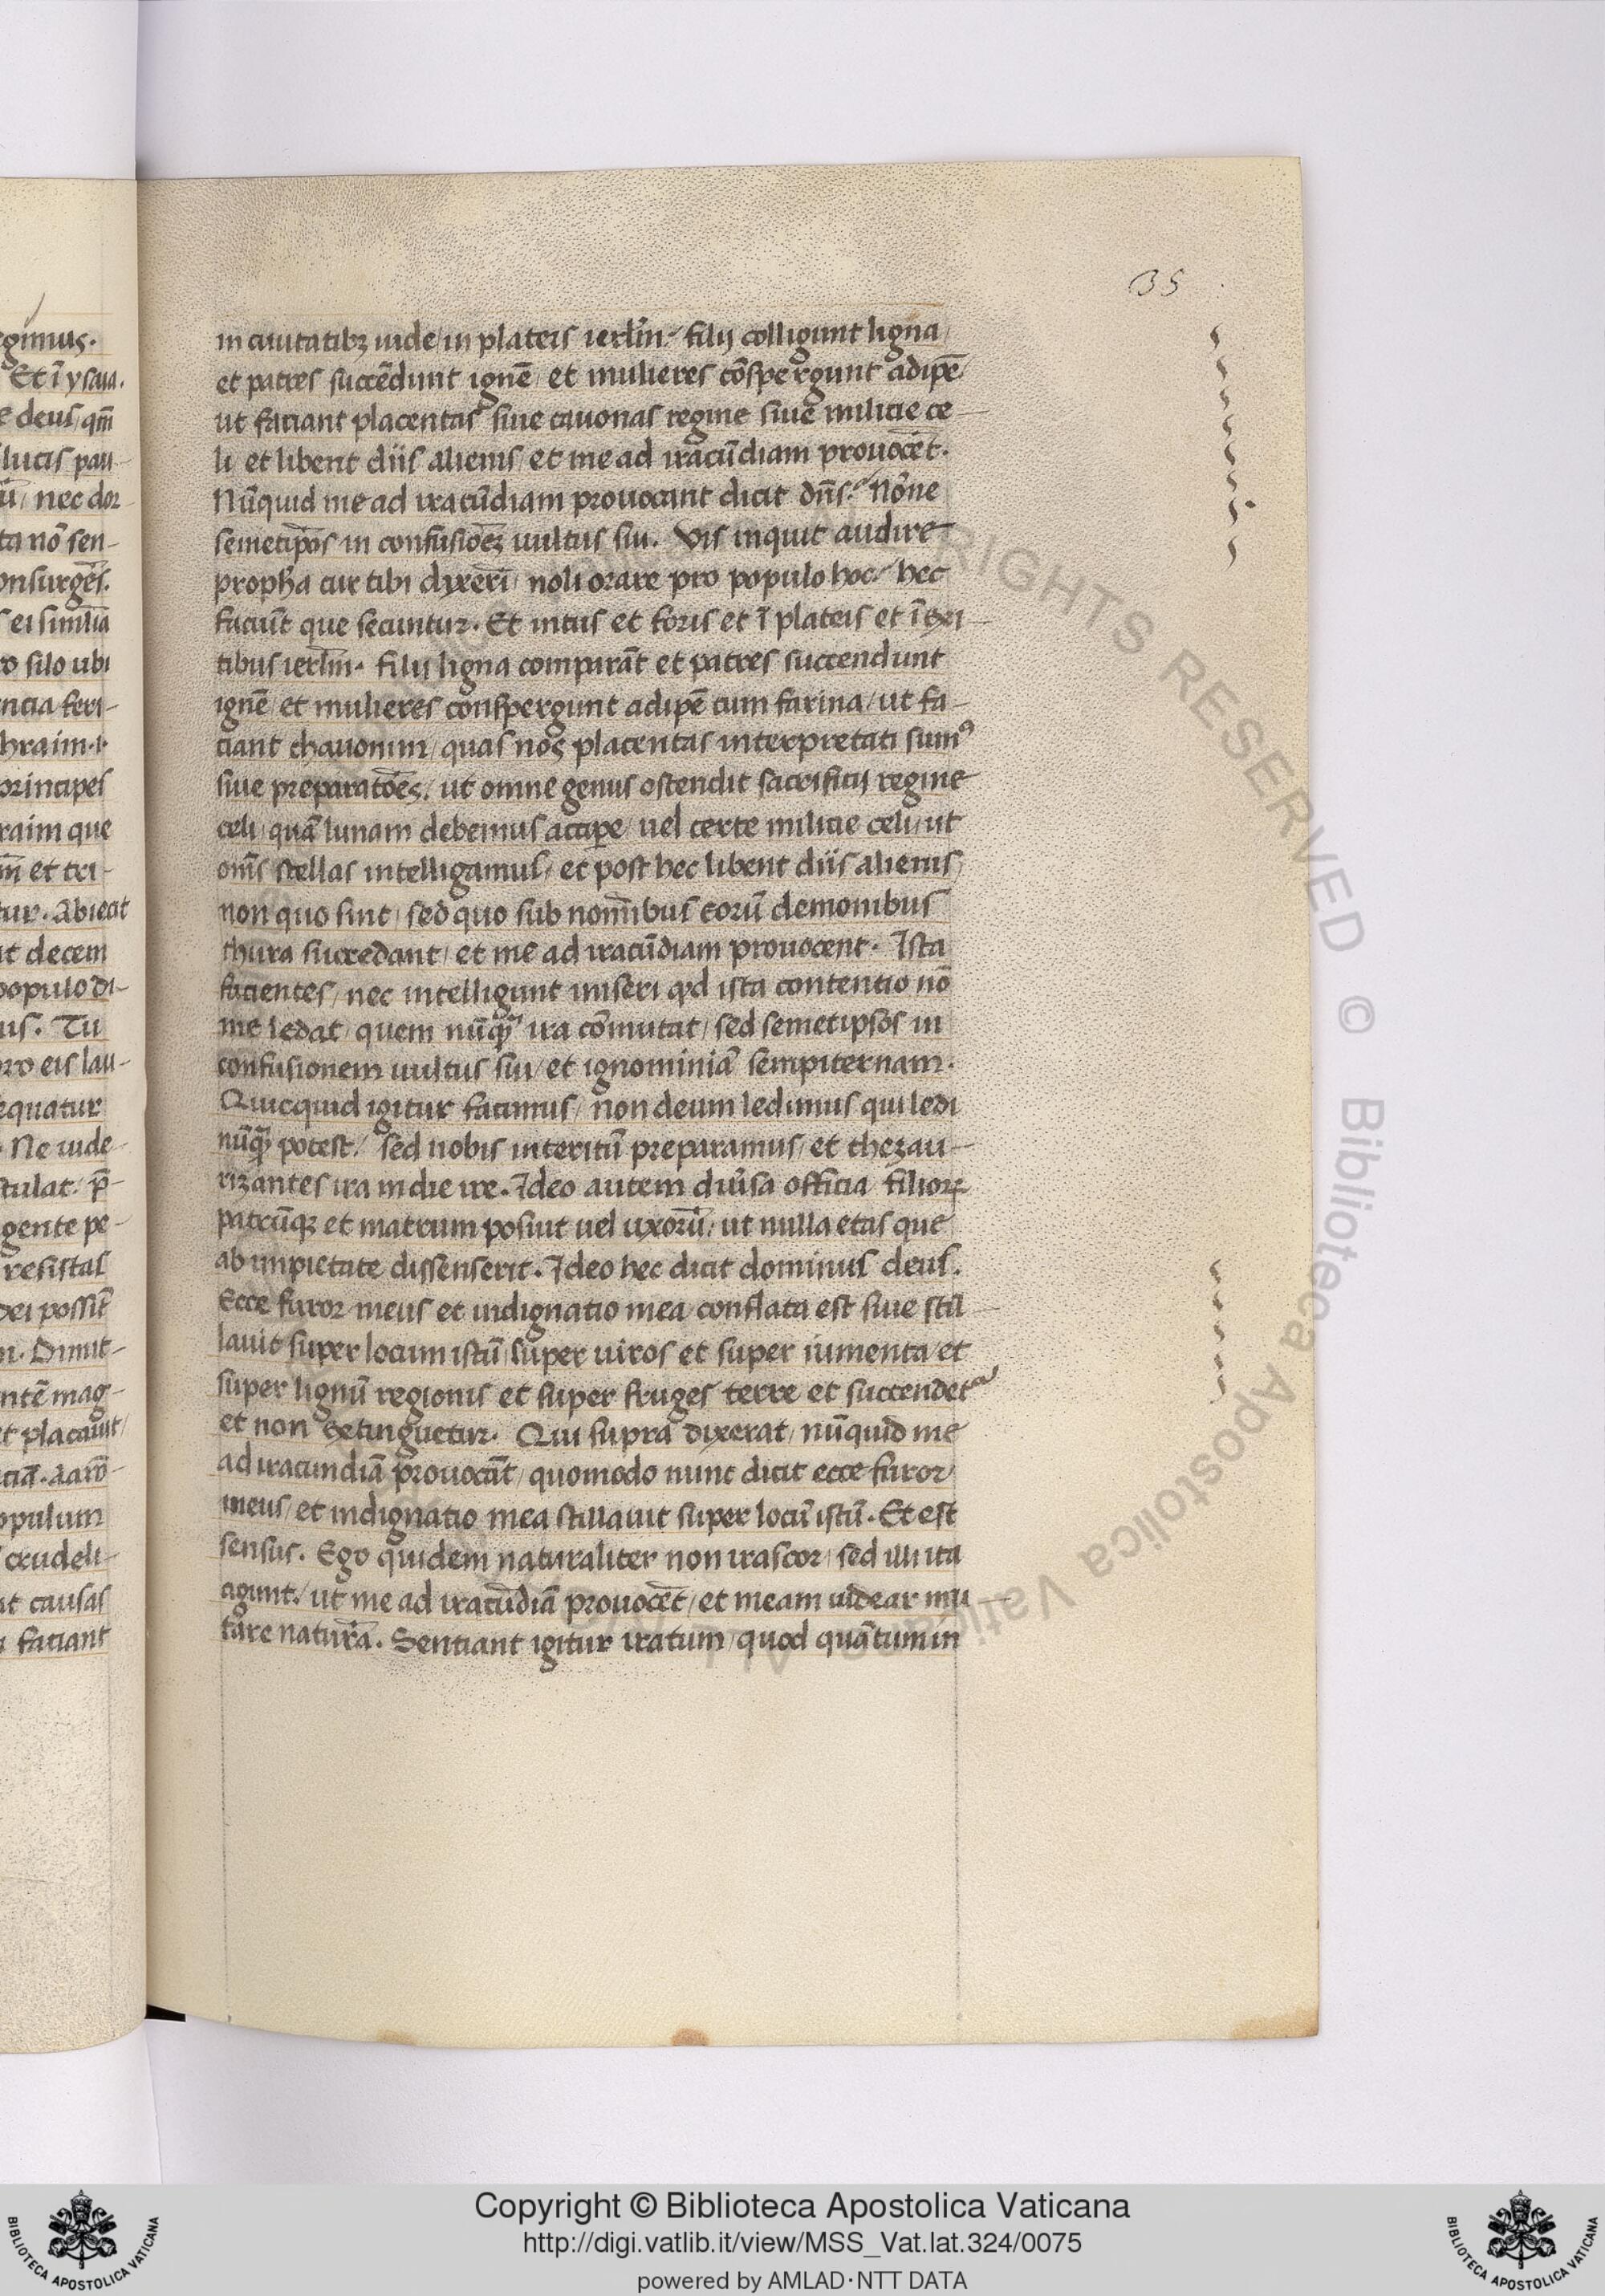 35
in ciuitatibꝫ iude / in plateis ierl̃m / filij colligunt ligna /
et patres succēdunt ignē / et mulieres cōspergunt adipē /
ut faciant placentas siue cauonas regine siue militie ce-
li / et libent diis alienis / et me ad iracūdiam prouocēt.
Nūquid me ad iracūdiam prouocant dicit dn̄s / Nōne
semetip̄os in confusiōeꝫ uultus sui. Vis inquit audire
prophã cur tibi dyxerī / noli orare pro populo hoc / hec
faciūt que secuntur. Et intus et foris et ī plateis et ī exi-
tibus ierl̃m. filii ligna comparāt et patres succendunt
ignē / et mulieres conspergunt adipē cum farina / ut fa-
ciant chauonim / quas nos placentas interpretati sumꝰ
siue preparatōes / ut omne genus ostendit sacrificij regine
celi / quā lunam debemus accipe / uel certe militie celi / ut
om̄s stellas intelligamus / et post hec libent diis alienis /
non quo sint / sed quo sub nom̄ibus eorū demonibus
thura succedant / et me ad iracūdiam prouocent. Ista
facientes / nec intelligunt miseri qđ ista contentio nō
me ledat / quem nūqꝫ ira cōmutat / sed semetipsos in
confusionem uultus sui / et ignominiā sempiternam.
Quicquid igitur facimus / non deum ledimus qui ledi
nūqꝫ potest / sed nobis interitū preparamus / et thezau-
rizantes ira in die ire. Ideo autem diũsa officia filioꝝ
patrūqꝫ et matrum posuit uel uxorū / ut nulla etas que
ab impietate dissenserit. Ideo hec dicit dominus deus.
Ecce furor meus et indignatio mea conflata est siue stil-
lauit super locum istū / super uiros et super iumenta / et
super lignū regionis et super fruges terre et succendetᵘʳ
et non extinguetur. Qui supra dixerat / nūquid me
ad iracundiā prouocāt / quomodo nunc dicit ecce furor
meus / et indignatio mea stillauit super locū istū. Et est
sensus. Ego quidem naturaliter non irascor / sed illi ita
agunt / ut me ad iracūdiā prouocēt / et meam uidear mu-
tare naturā. Sentiant igitur iratum / quod quātum in
Copyright © Biblioteca Apostolica Vaticana
http://digi.vatlib.it/view/MSS_Vat.lat.324/0075
powered by AMLAD·NTT DATA